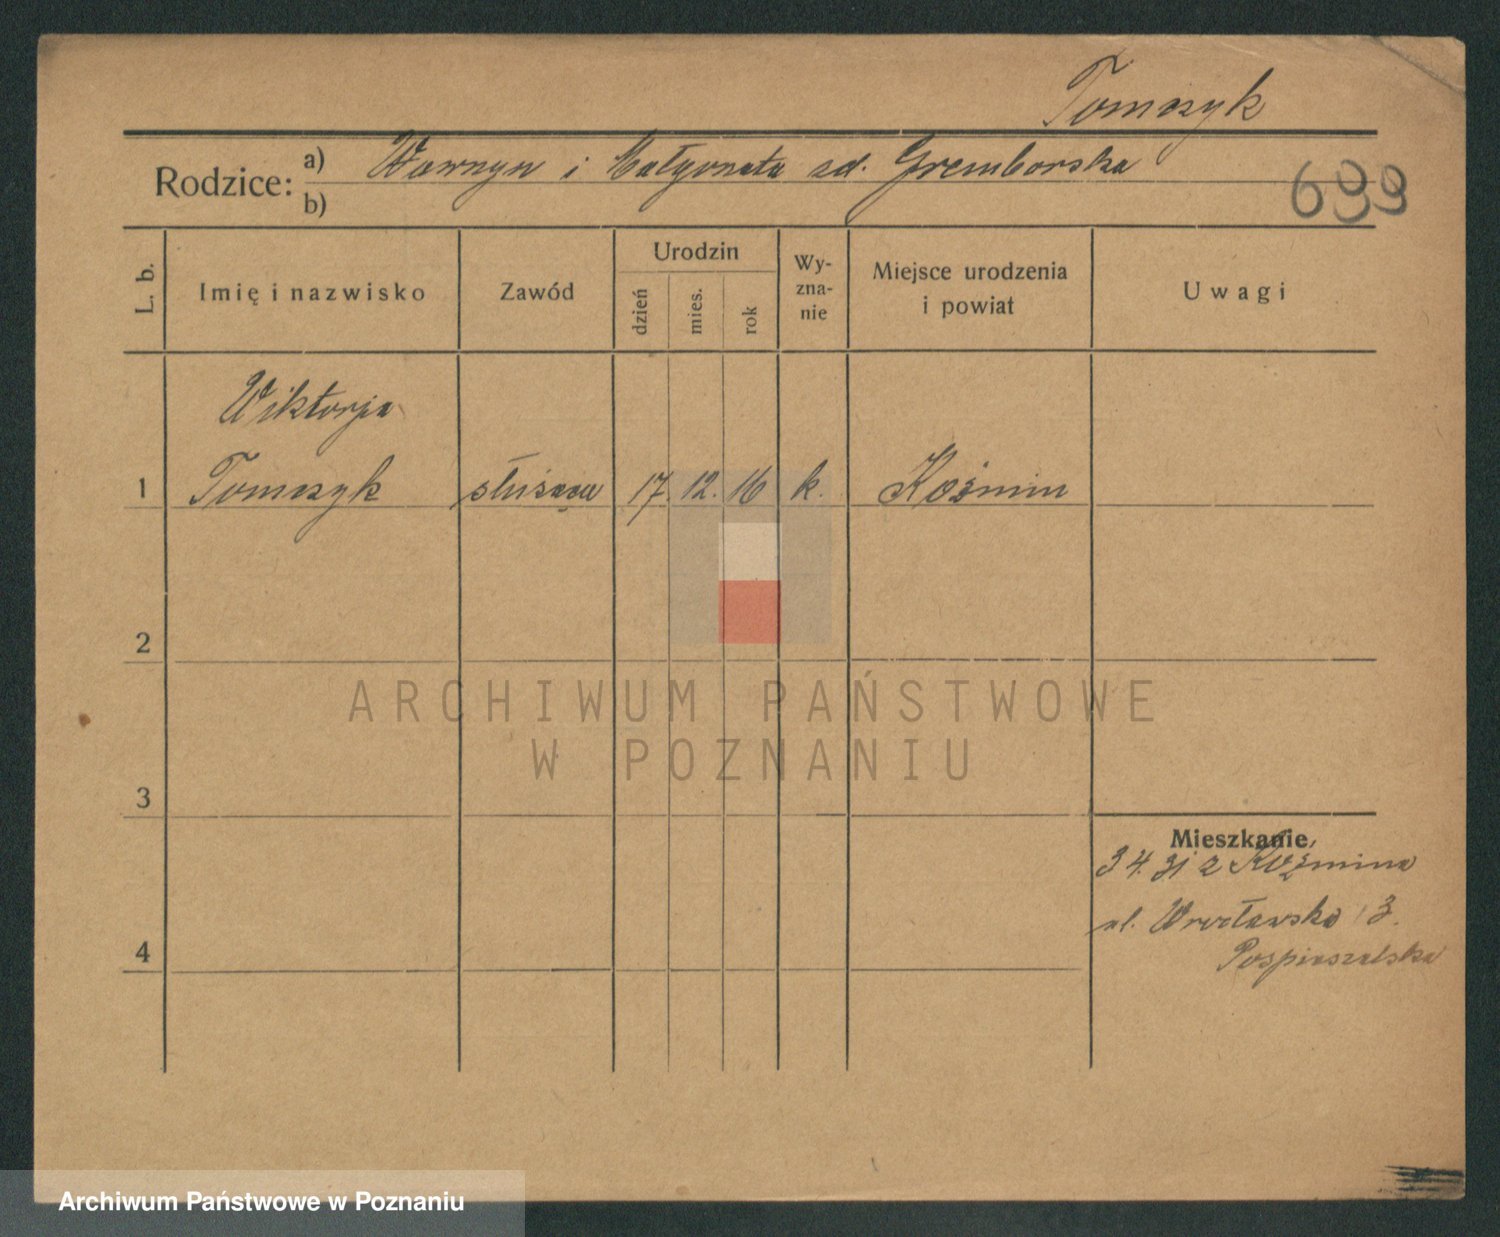 Tomczyk
Rodzice: a) Wawrzyn i Małgorzata zd. Gremborska
b)
699
L. b.
Imię i nazwisko
Zawód
Urodzin
dzień
mies.
rok
Wy-
zna-
nie
Miejsce urodzenia
i powiat
Uwagi
Wiktorja
1 Tomczyk służąca 17. 12. 16 k. Koźmin
2
3
4
Mieszkanie
3 4. 31 z Koźmina
ul. Wrocławska 13.
Pospieszalska
ARCHIWUM PAŃSTWOWE
W POZNANIU
Archiwum Państwowe w Poznaniu